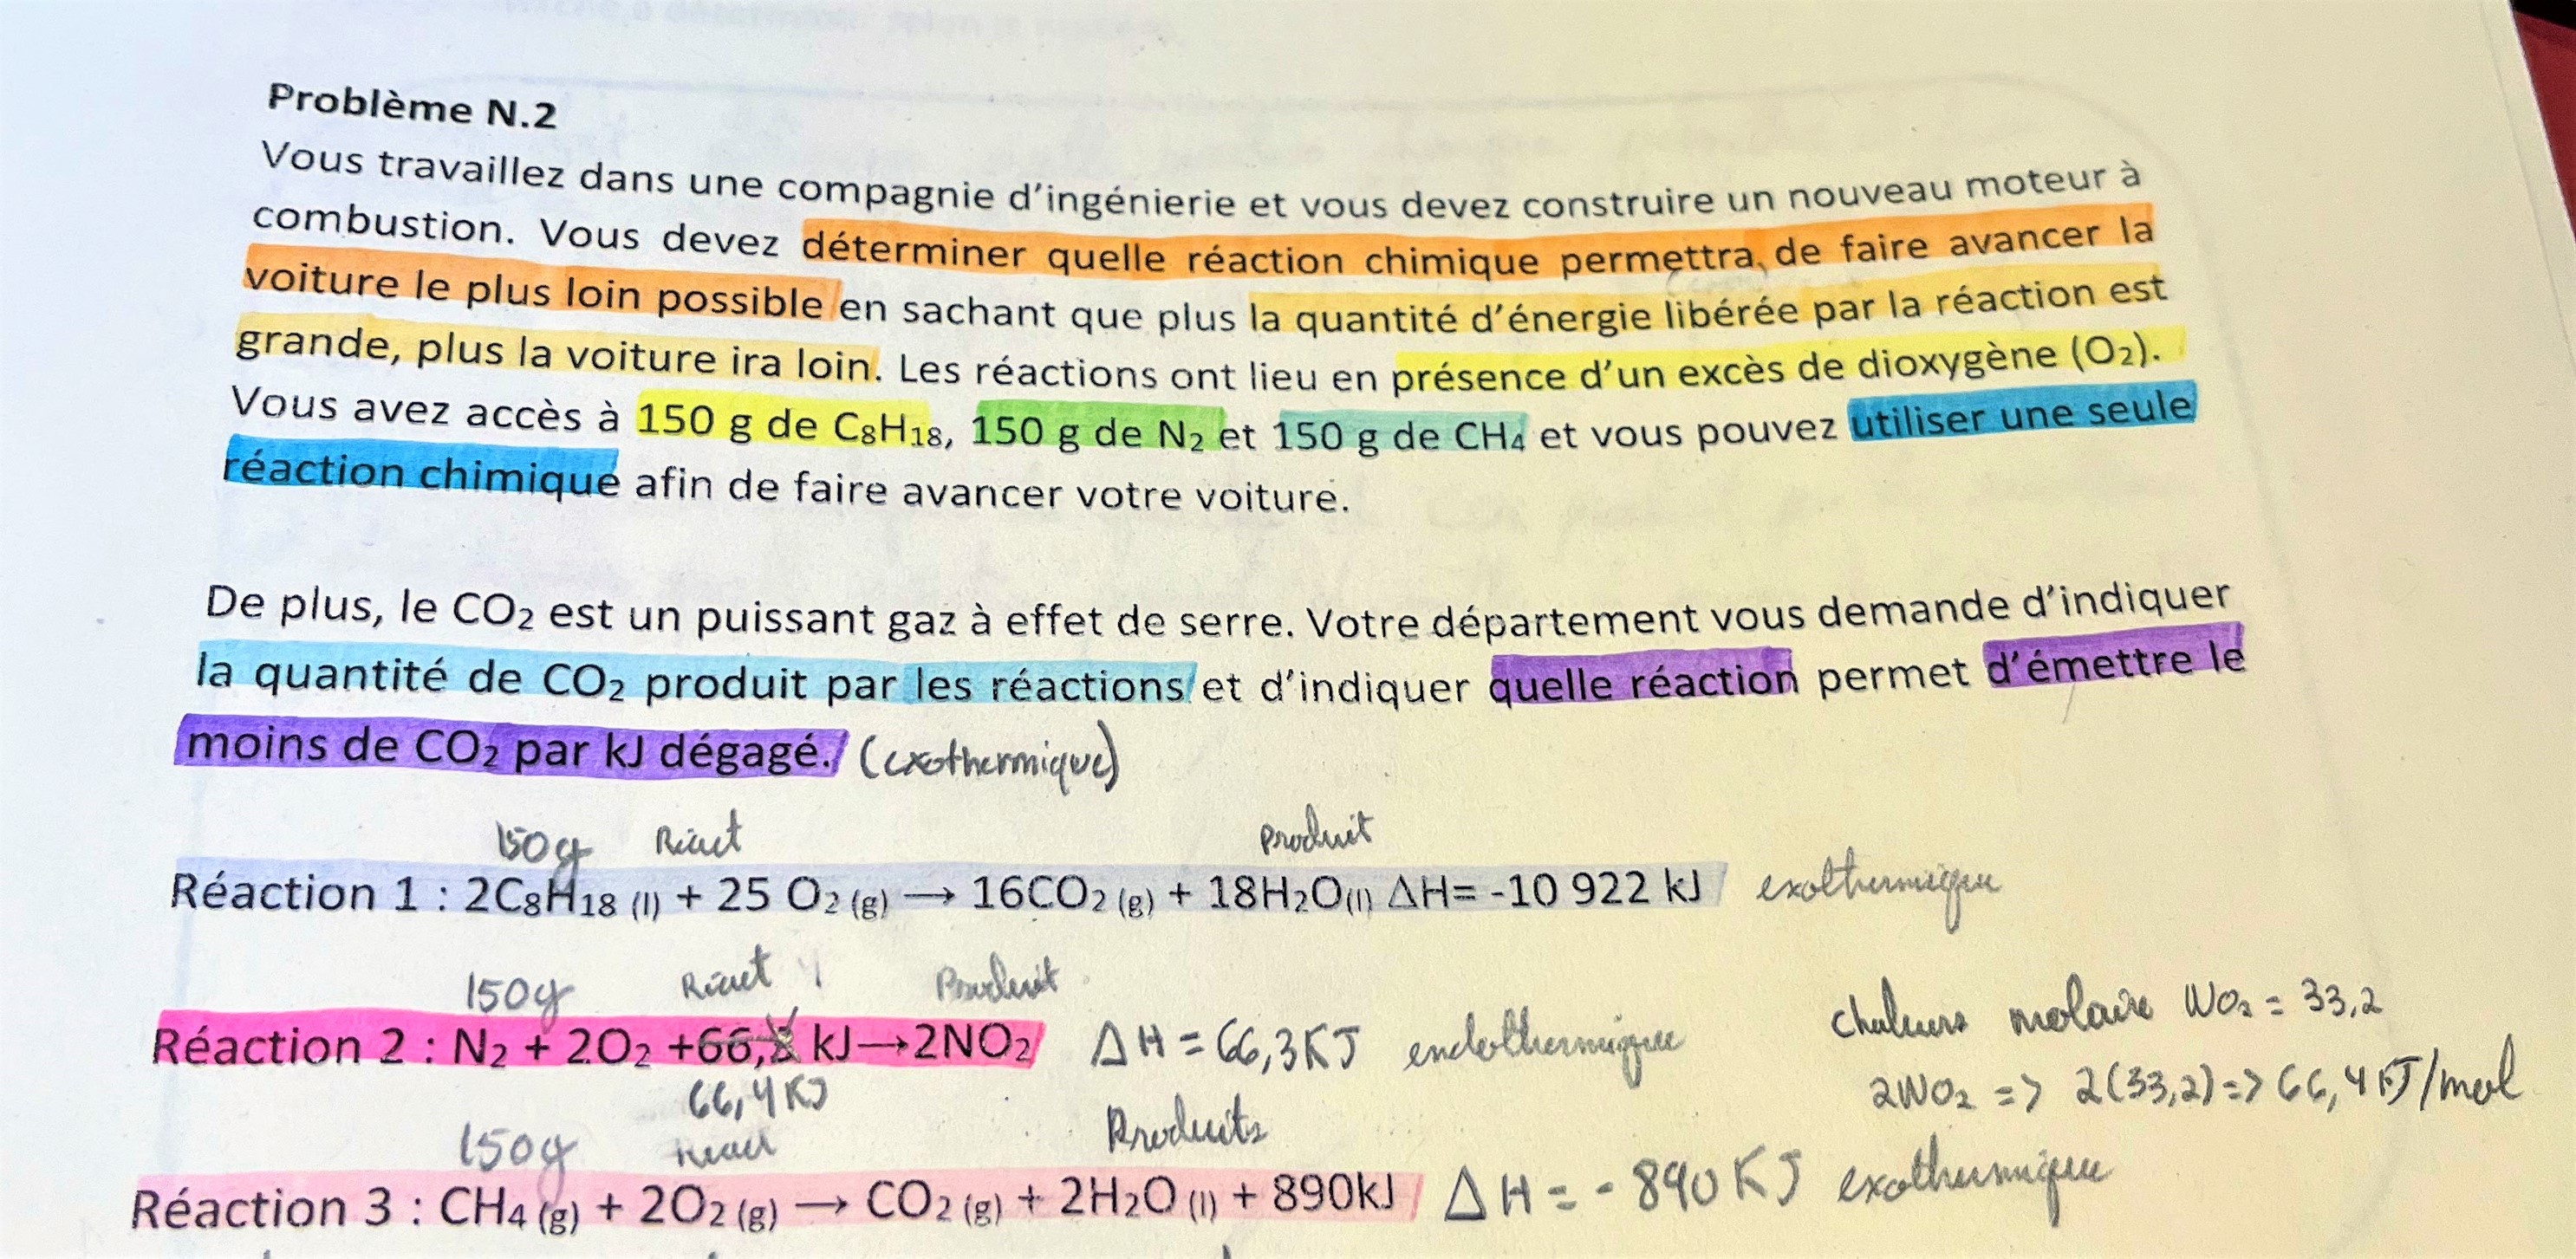 Problème N.2
Vous travaillez dans une compagnie d'ingénierie et vous devez construire un nouveau moteur à
combustion. Vous devez déterminer quelle réaction chimique permettra de faire avancer la
voiture le plus loin possible en sachant que plus la quantité d'énergie libérée par la réaction est
grande, plus la voiture ira loin. Les réactions ont lieu en présence d'un excès de dioxygène (O₂).
Vous avez accès à 150 g de C₈H₁₈, 150 g de N₂ et 150 g de CH₄ et vous pouvez utiliser une seule
réaction chimique afin de faire avancer votre voiture.
De plus, le CO₂ est un puissant gaz à effet de serre. Votre département vous demande d'indiquer
la quantité de CO₂ produit par les réactions et d'indiquer quelle réaction permet d'émettre le
moins de CO₂ par kJ dégagé. (exothermique)
150g Réact Produit
Réaction 1 : 2C₈H₁₈ (l) + 25 O₂ (g) → 16CO₂ (g) + 18H₂O(l) ΔH= -10 922 kJ exothermique
150g Réact Produit
chaleurs molaire NO₂ = 33,2
Réaction 2 : N₂ + 2O₂ +66, kJ→2NO₂ ΔH = 66,3KJ endothermique
66,4KJ
2NO₂ => 2(33,2)=> 66,4 KJ/mol
150g React Produits
Réaction 3 : CH₄ (g) + 2O₂ (g) → CO₂ (g) + 2H₂O (l) + 890kJ ΔH = - 890KJ exothermique